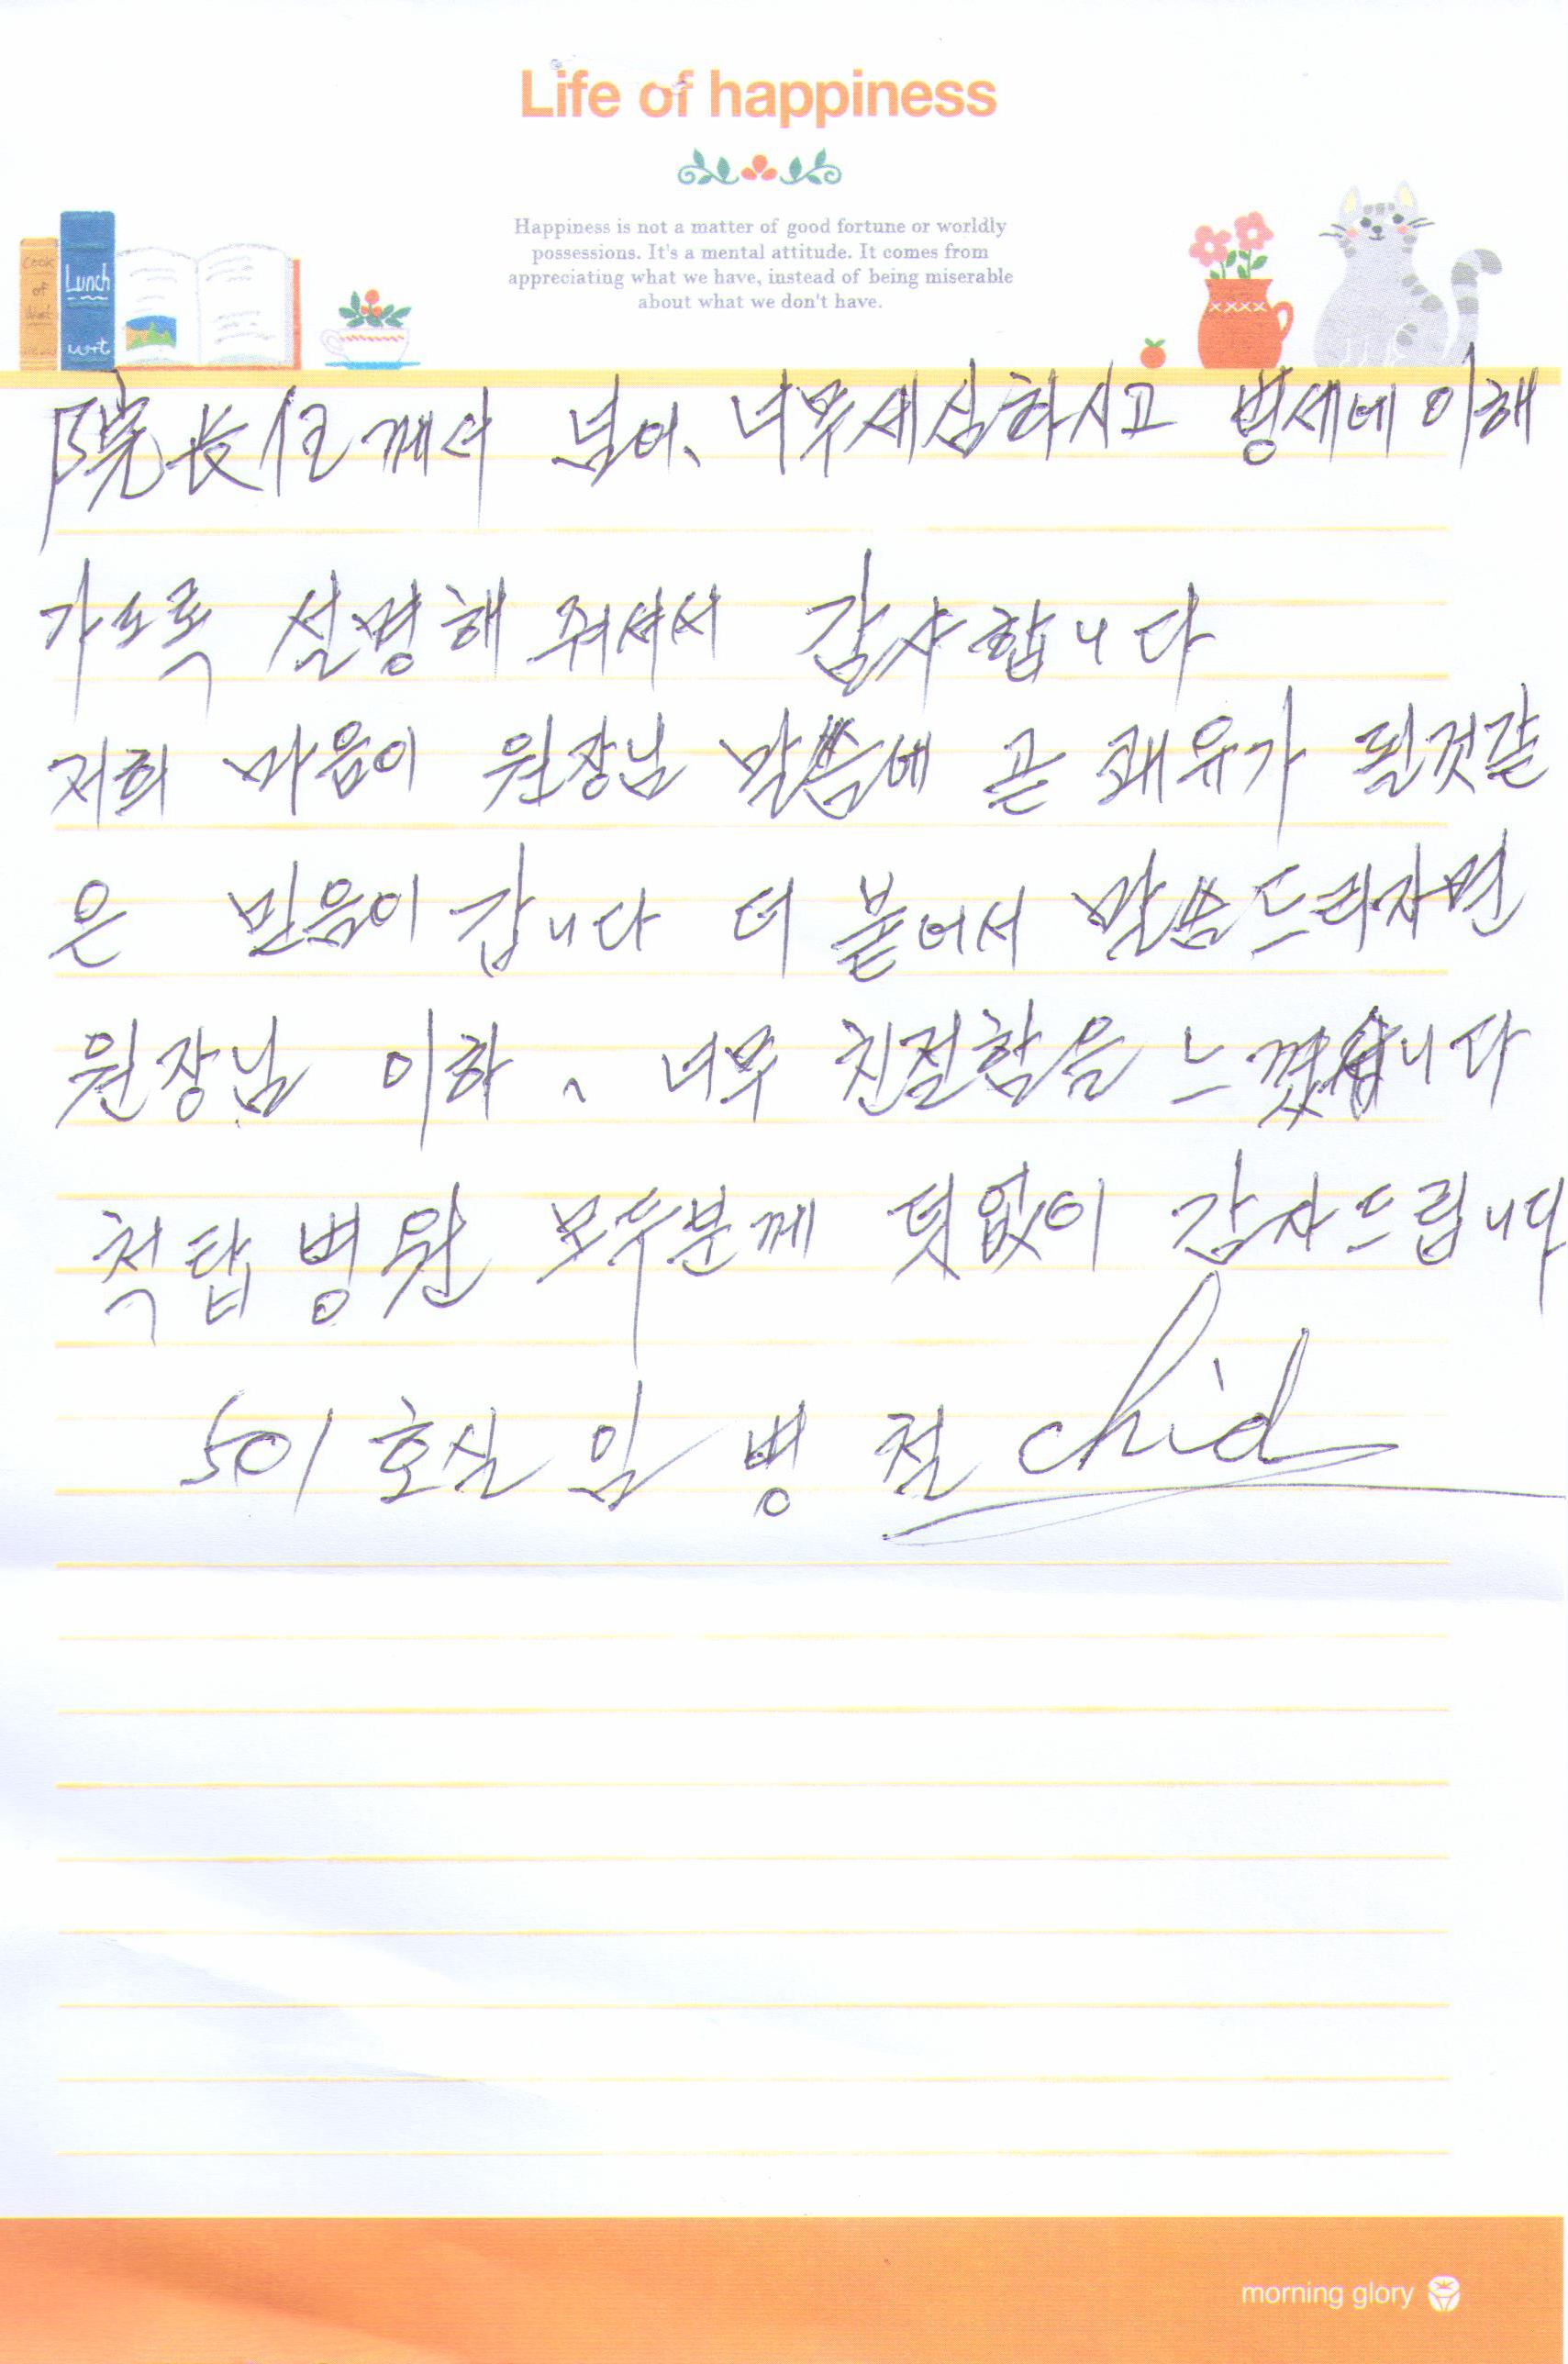 Life of happiness
Happiness is not a matter of good fortune or worldly
possessions. It's a mental attitude. It comes from
appreciating what we have, instead of being miserable
about what we don't have.
Cook
of
Lunch
院長任께서 너무세심하시고 병세에 이해
가도록 설명해 줘셔서 감사합니다
저희 마음이 원장님 말씀에 곧 쾌유가 될것같
은 믿음이 갑니다 더 붙어서 말씀드리자면
원장님 이하、 너무 친절함을 느꼈습니다
척탑병원 모두분께 덧없이 감사드립니다
501호실 임 병 철
morning glory